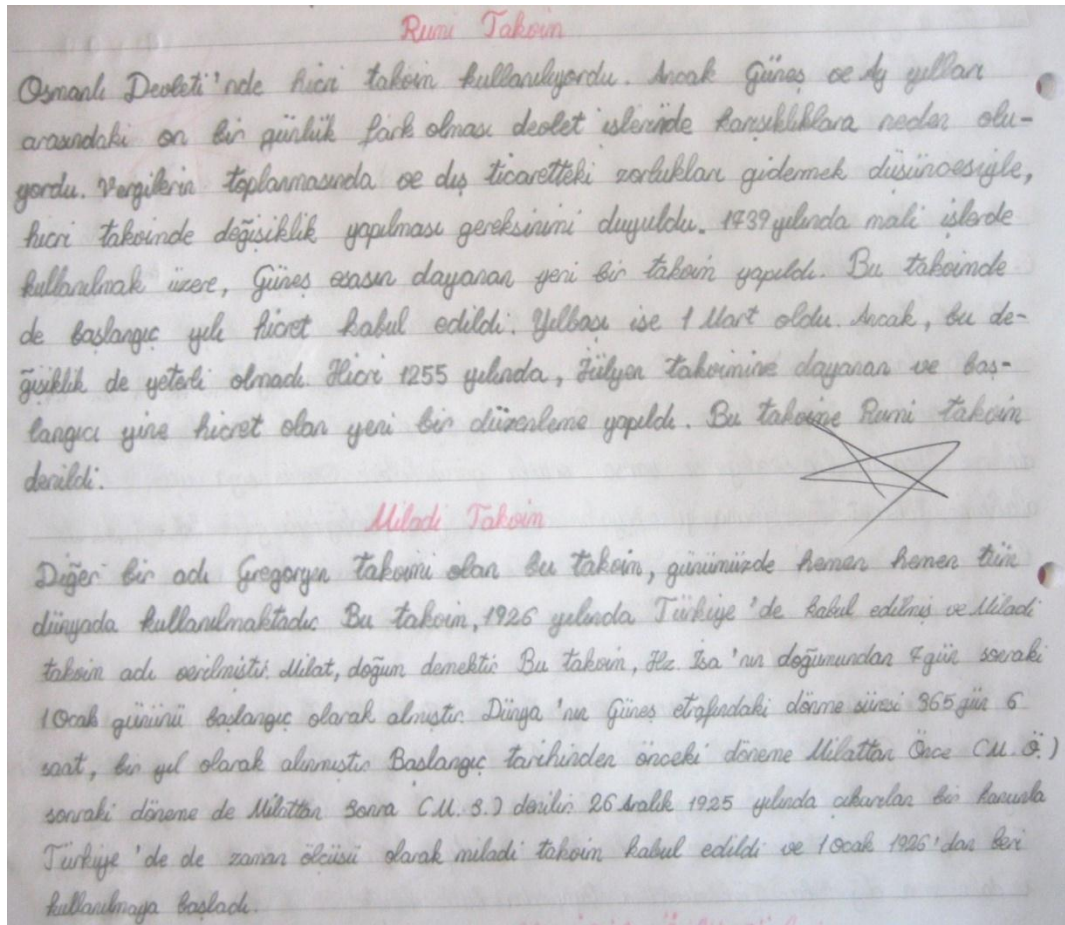 Rumi Takvin
Osmanlı Devleti'nde hicri takvim kullanılıyordu. Ancak Güneş ve Ay yılları
arasındaki on bir günlük fark olması devlet işlerinde karışıklıklara neden olu-
yordu. Vergilerin toplanmasında ve dış ticaretteki zorlukları gidermek düşüncesiyle,
hicri takvinde değişiklik yapılması gereksinimi duyuldu. 1739 yılında mali işlerde
kullanılmak üzere, Güneş esasın dayanan yeni bir takvim yapıldı. Bu takvimde
de başlangıç yılı hicret kabul edildi. Yılbaşı ise 1 Mart oldu. Ancak, bu de-
ğişiklik de yeterli olmadı. Hicri 1255 yılında, Jülyen takvimine dayanan ve baş-
langıcı yine hicret olan yeni bir düzenleme yapıldı. Bu takvime Rumi takvin
denildi.
Miladi Takvin
Diğer bir adı Gregoryen takvimi olan bu takvin, günümüzde hemen hemen tüm
dünyada kullanılmaktadır. Bu takvin, 1926 yılında Türkiye'de kabul edilmiş ve Miladi
takvin adı verilmiştir. Milat, doğum demektir. Bu takvin, Hz. İsa'nın doğumundan 7 gün sonraki
1 Ocak gününü başlangıç olarak almıştır. Dünya'nın Güneş etrafındaki dönme süresi 365 gün 6
saat, bir yıl olarak alınmıştır. Başlangıç tarihinden önceki döneme Milattan Önce (M.Ö.)
sonraki döneme de Milattan Sonra (M.S.) denilir. 26 Aralık 1925 yılında çıkarılan bir kanunla
Türkiye'de de zaman ölçüsü olarak miladi takvim kabul edildi ve 1 Ocak 1926'dan beri
kullanılmaya başladı.